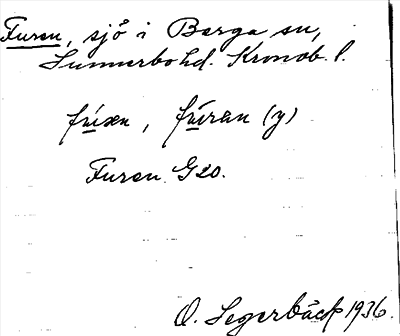 Furen, sjö i Berga sn,
Sunnerbo hd. Kronob. l.
furen, furan (y)
Furen G20.
O. Segerbäck 1936.